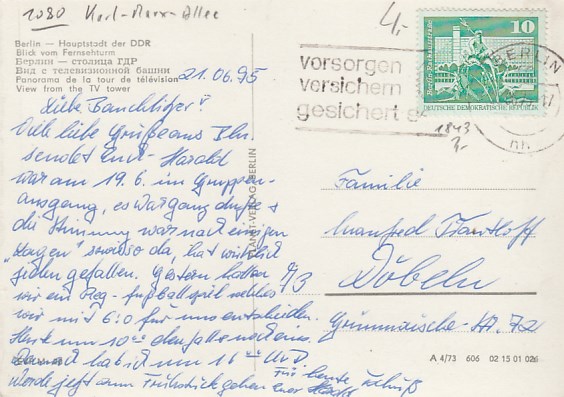 1080 Karl-Marx-Allee
4,-
Berlin — Hauptstadt der DDR
Blick vom Fernsehturm
Берлин — столица ГДР
Вид с телевизионной башни
Panorama de la tour de télévision
View from the TV tower
vorsorgen
versichern
gesichert
10
Berlin
DEUTSCHE DEMOKRATISCHE REPUBLIK
BERLIN
1843
3,-
Viele liebe Grüße aus Bln
sendet Euch - Harald
war am 19.6. im Gruppen-
ausgang, es war ganz dufte +
die Stimmung war nach einigen
"Lagen" sowieso da, hat wirklich
jeden gefallen. Gestern hatten
wir ein Reg - fußballspiel welches
wir mit 6:0 für uns entscheiden.
Heute um 10 00
hab ich um 16 UvD
Werde jetzt zum Frühstück gehen Euer
Für heute
Schluß
VERLAG BERLIN
Familie
Manfred
73 Döbeln
Grimmaische-Str. 72
A 4/73 606 02 15 01 026